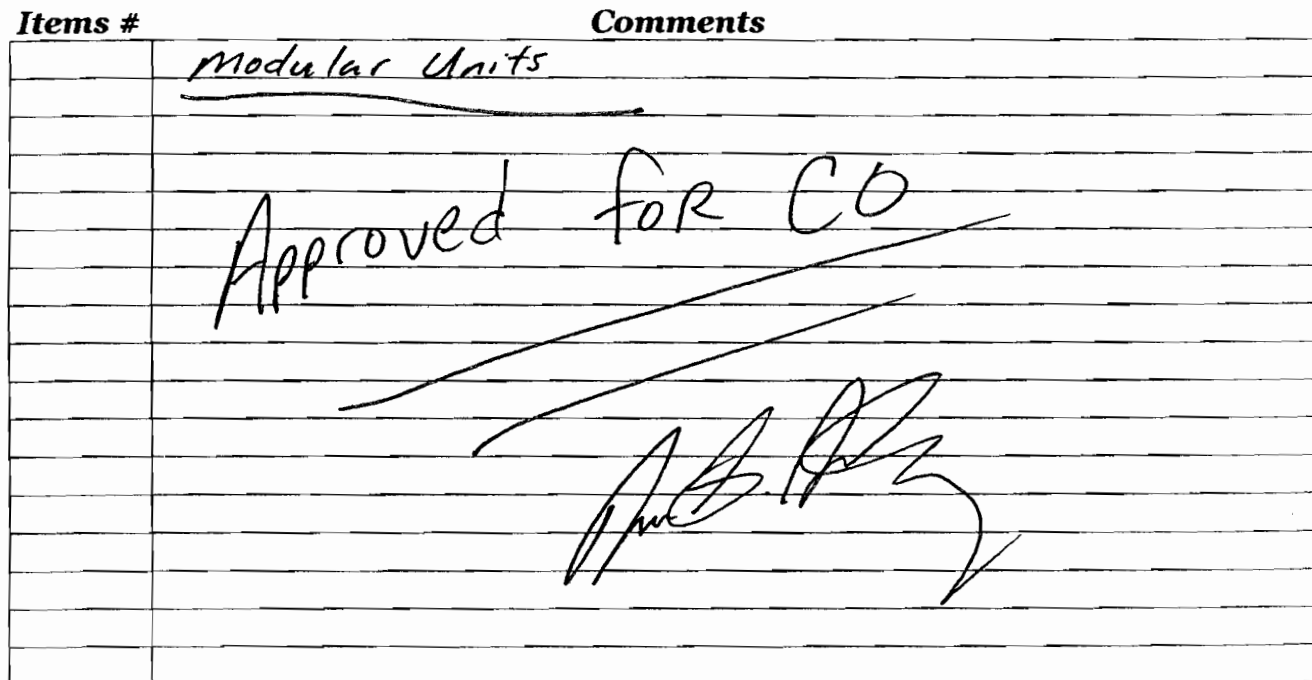 Items # Comments
Modular Units
Approved foR CO